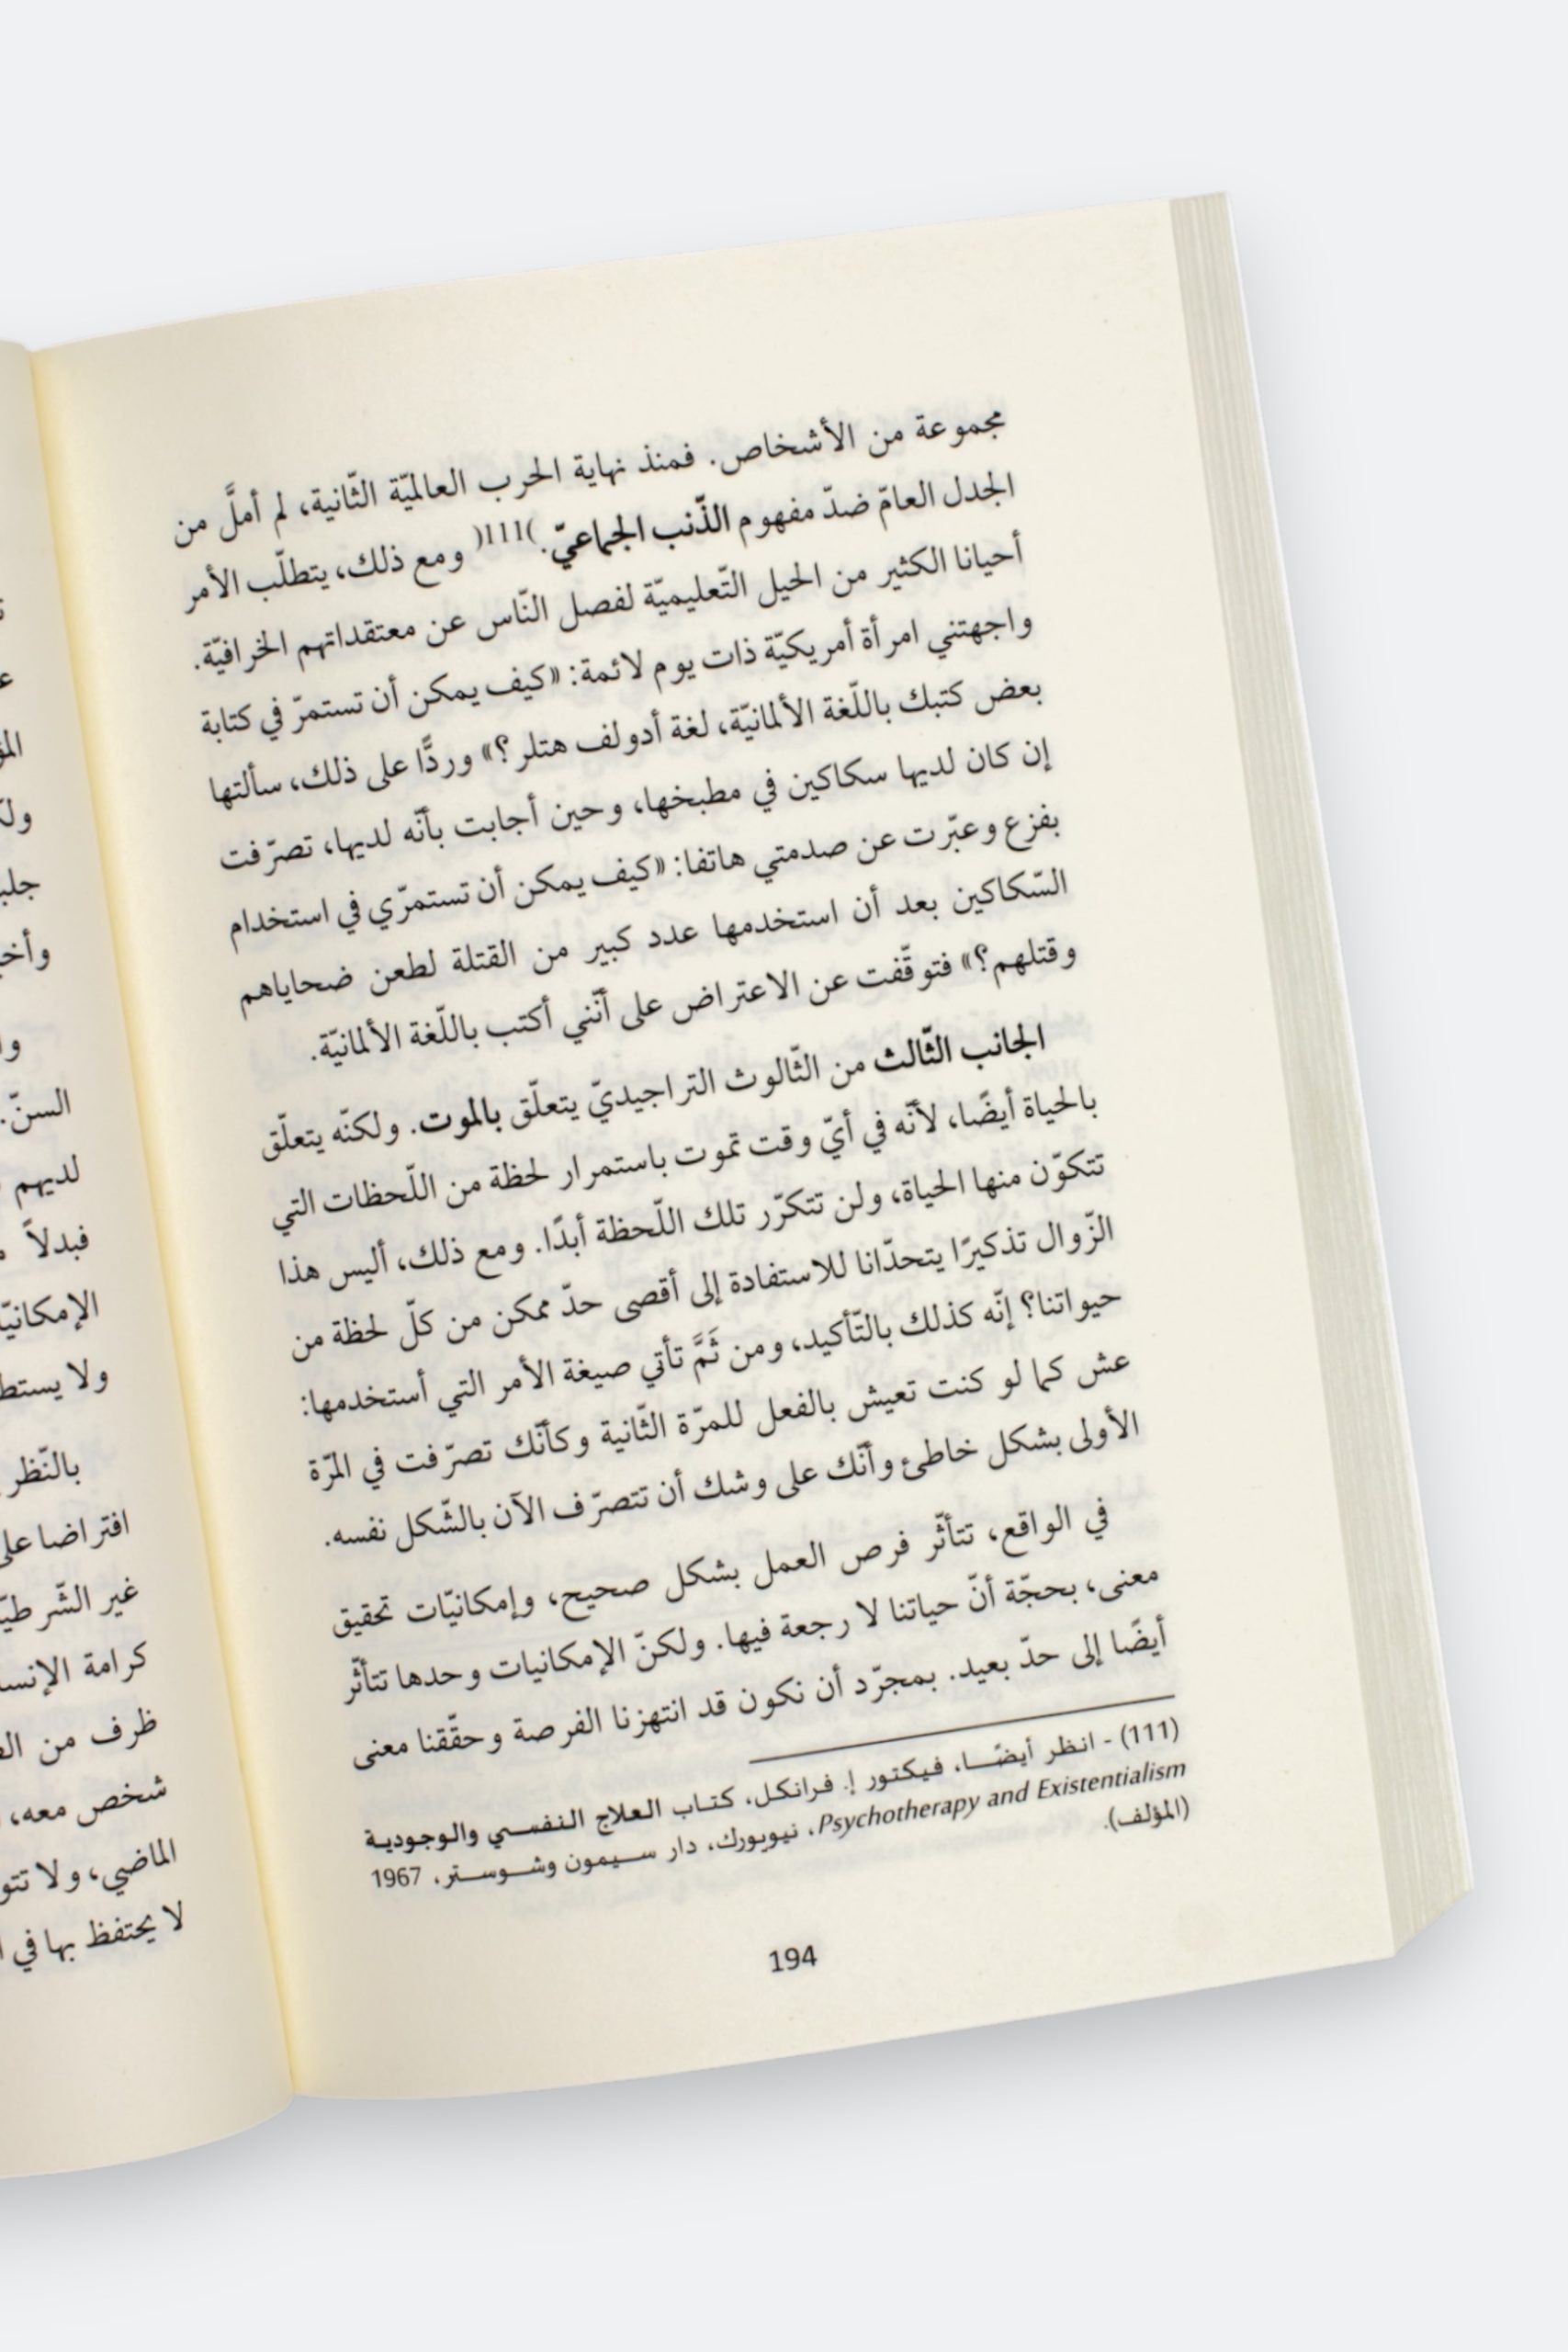 مجموعة من الأشخاص. فمنذ نهاية الحرب العالميّة الثّانية، لم أملَّ من
الجدل العامّ ضدّ مفهوم الذّنب الجماعيّ.)111( ومع ذلك، يتطلّب الأمر
أحيانا الكثير من الحيل التّعليميّة لفصل النّاس عن معتقداتهم الخرافيّة.
واجهتني امرأة أمريكيّة ذات يوم لائمة: «كيف يمكن أن تستمرّ في كتابة
بعض كتبك باللّغة الألمانيّة، لغة أدولف هتلر؟» وردًّا على ذلك، سألتها
إن كان لديها سكاكين في مطبخها، وحين أجابت بأنّه لديها، تصرّفت
بفزع وعبّرت عن صدمتي هاتفا: «كيف يمكن أن تستمرّي في استخدام
السّكاكين بعد أن استخدمها عدد كبير من القتلة لطعن ضحاياهم
وقتلهم؟» فتوقّفت عن الاعتراض على أنّني أكتب باللّغة الألمانيّة.
الجانب الثّالث من الثّالوث التراجيديّ يتعلّق بالموت. ولكنّه يتعلّق
بالحياة أيضًا، لأنّه في أيّ وقت تموت باستمرار لحظة من اللّحظات التي
تتكوّن منها الحياة، ولن تتكرّر تلك اللّحظة أبدًا. ومع ذلك، أليس هذا
الزّوال تذكيرًا يتحدّانا للاستفادة إلى أقصى حدّ ممكن من كلّ لحظة من
حيواتنا؟ إنّه كذلك بالتّأكيد، ومن ثَمَّ تأتي صيغة الأمر التي أستخدمها:
عش كما لو كنت تعيش بالفعل للمرّة الثّانية وكأنّك تصرّفت في المرّة
الأولى بشكل خاطئ وأنّك على وشك أن تتصرّف الآن بالشّكل نفسه.
في الواقع، تتأثّر فرص العمل بشكل صحيح، وإمكانيّات تحقيق
معنى، بحجّة أنّ حياتنا لا رجعة فيها. ولكنّ الإمكانيات وحدها تتأثّر
أيضًا إلى حدّ بعيد. بمجرّد أن نكون قد انتهزنا الفرصة وحقّقنا معنى
(111) - انظر أيضًا، فيكتور إ. فرانكل، كتاب العلاج النفسي والوجودية
Psychotherapy and Existentialism، نيويورك، دار سيمون وشوستر، 1967
(المؤلف).
194
السنّ.
لديهم
فبدلاً
ولا يستط
بالنّظر
افتراضا على
غير الشّرطيّ
كرامة الإنس
ظرف من
شخص معه،
الماضي، ولا تتو
لا يحتفظ بها في